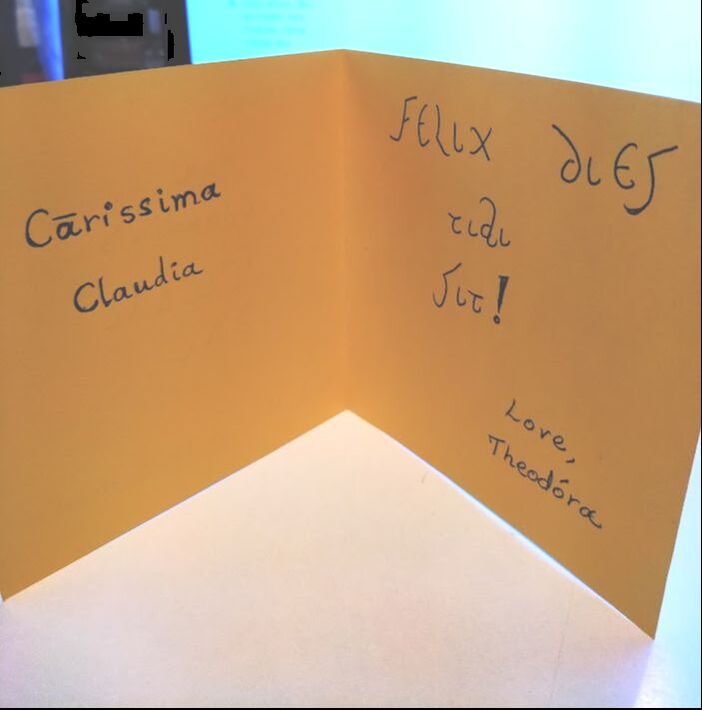 Cārissima
Claudia
FELIX DIES
TIBI
SIT!
Love,
Theodóra